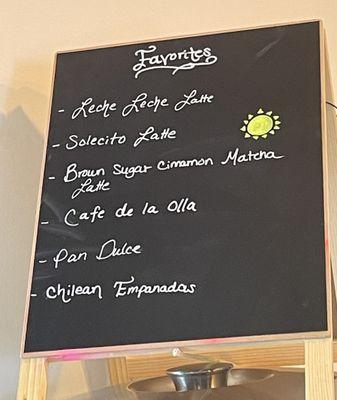 Favorites
- Leche Leche Latte
- Solecito Latte
- Brown Sugar Cinnamon Matcha
Latte
- Cafe de la Olla
- Pan Dulce
- Chilean Empanadas